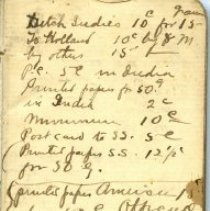 Dutch Indies 10c for 15
To Holland 10c by S M
by others 15
P.C. 5c in India
Printed papers for 50g
in India 2c
Minimum 10c
Post card to SS. 5c
Printed papers S.S. 12½
for 50 g.
(printed papers America